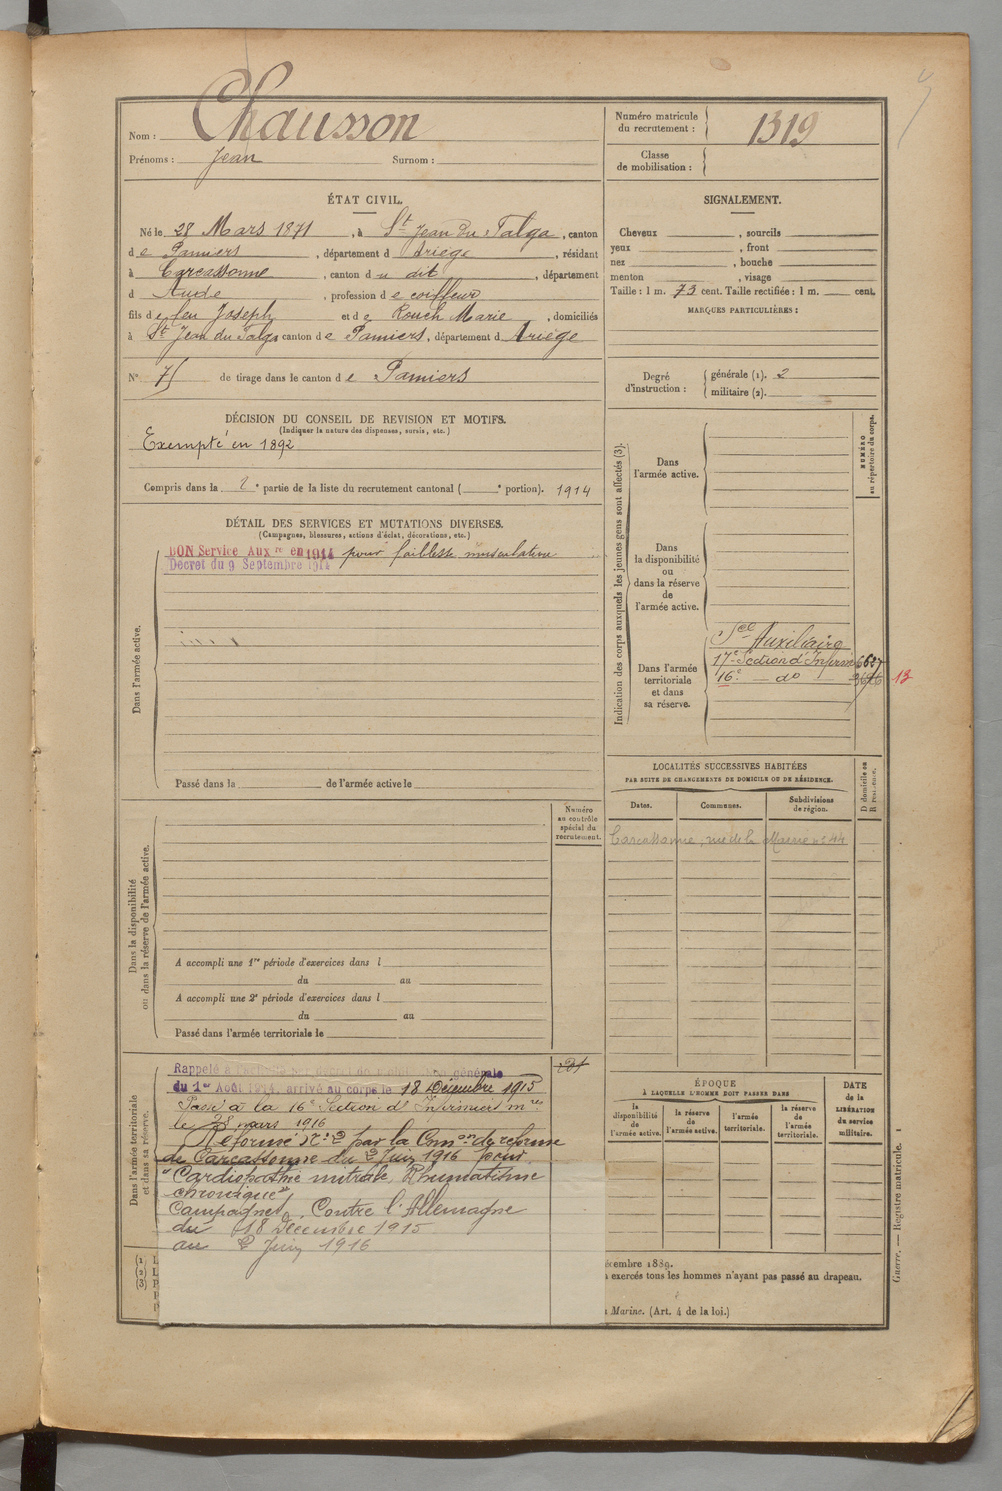 Nom : Chausson
Prénoms : Jean Surnom :
Numéro matricule du recrutement : 1319
Classe de mobilisation :
ÉTAT CIVIL.
Né le 28 Mars 1871, à St Jean du Falga, canton
de Pamiers, département d Ariège, résidant
à Carcassonne, canton du dit, département
d Aude, profession de coiffeur
fils de feu Joseph et de Rouch Marie, domiciliés
à St Jean du Falga canton de Pamiers, département d Ariège
N° 75 de tirage dans le canton de Pamiers
SIGNALEMENT.
Cheveux , sourcils
yeux , front
nez , bouche
menton , visage
Taille : 1 m. 73 cent. Taille rectifiée : 1 m. cent.
MARQUES PARTICULIÈRES :
Degré d'instruction : générale (1). 2
militaire (2).
DÉCISION DU CONSEIL DE REVISION ET MOTIFS.
(Indiquer la nature des dispenses, sursis, etc.)
Exempté en 1892
Compris dans la 2e partie de la liste du recrutement cantonal ( e portion). 1914
DÉTAIL DES SERVICES ET MUTATIONS DIVERSES.
(Campagnes, blessures, actions d'éclat, décorations, etc.)
BON Service Auxre en 1914 pour faiblesse musculaire
Décret du 9 Septembre 1914
Dans l'armée active.
Passé dans la de l'armée active le
Indication des corps auxquels les jeunes gens sont affectés (3)
NUMÉRO au répertoire du corps.
Dans
l'armée active.
Dans
la disponibilité
ou
dans la réserve
de
l'armée active.
Dans l'armée
territoriale
et dans
sa réserve.
Sce Auxiliaire
17e Section d'Infirm 6627
16e do 13
LOCALITÉS SUCCESSIVES HABITÉES
PAR SUITE DE CHANGEMENTS DE DOMICILE OU DE RÉSIDENCE.
D domicile ou R résidence.
Dates. Communes. Subdivisions de région.
Carcassonne, rue de la Mairie n° 44
Numéro
au contrôle
spécial du
recrutement.
Dans la disponibilité
ou dans la réserve de l'armée active.
A accompli une 1re période d'exercices dans l
du au
A accompli une 2e période d'exercices dans l
du au
Passé dans l'armée territoriale le
Dans l'armée territoriale
et dans sa réserve.
Rappelé à l'activité par décret de mobilisation générale
du 1er Août 1914, arrivé au corps le 18 Décembre 1915
Passé à la 16e Section d'Infirmiers mres
le 28 mars 1916
Réformé N° 2 par la Comon de reforme
de Carcassonne du 2 Juin 1916 pour
"Cardiopathie mitrale, Rhumatisme
chronique"
Campagnes, Contre l'Allemagne
du 18 Décembre 1915
au 2 Juin 1916
ÉPOQUE
À LAQUELLE L'HOMME DOIT PASSER DANS
la disponibilité de l'armée active.
la réserve de l'armée active.
l'armée territoriale.
la réserve de l'armée territoriale.
DATE
de la
LIBÉRATION
du service
militaire.
(1)
(2)
(3)
écembre 1889.
exercés tous les hommes n'ayant pas passé au drapeau.
Marine. (Art. 4 de la loi.)
Guerre. — Registre matricule. 1